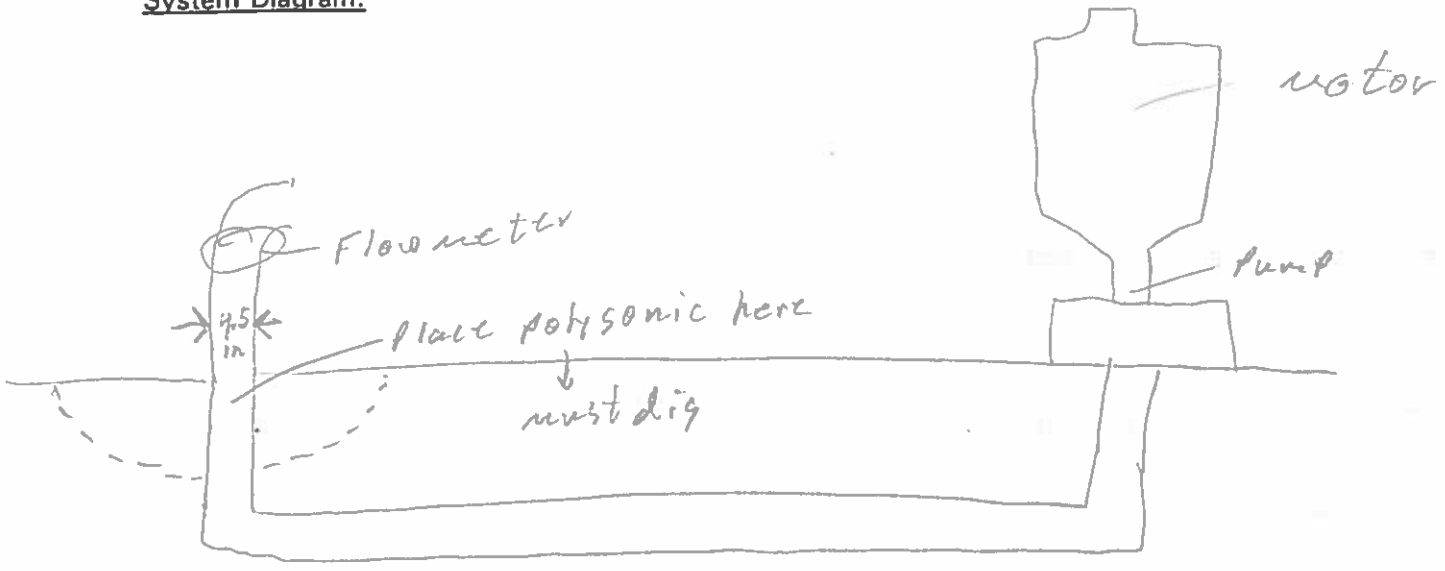 System Diagram:
motor
Flowmeter
Pump
4.5
in
Place polysonic here
must dig